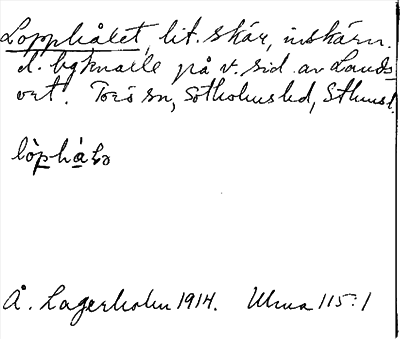 Lopphålet, lit. skär, inskärn.
på v. sid. av Lands-
ort. Torö sn, Sotholms hd, Sthms l.
lòphåle
Å. Lagerholm 1914. Ulma 115:1